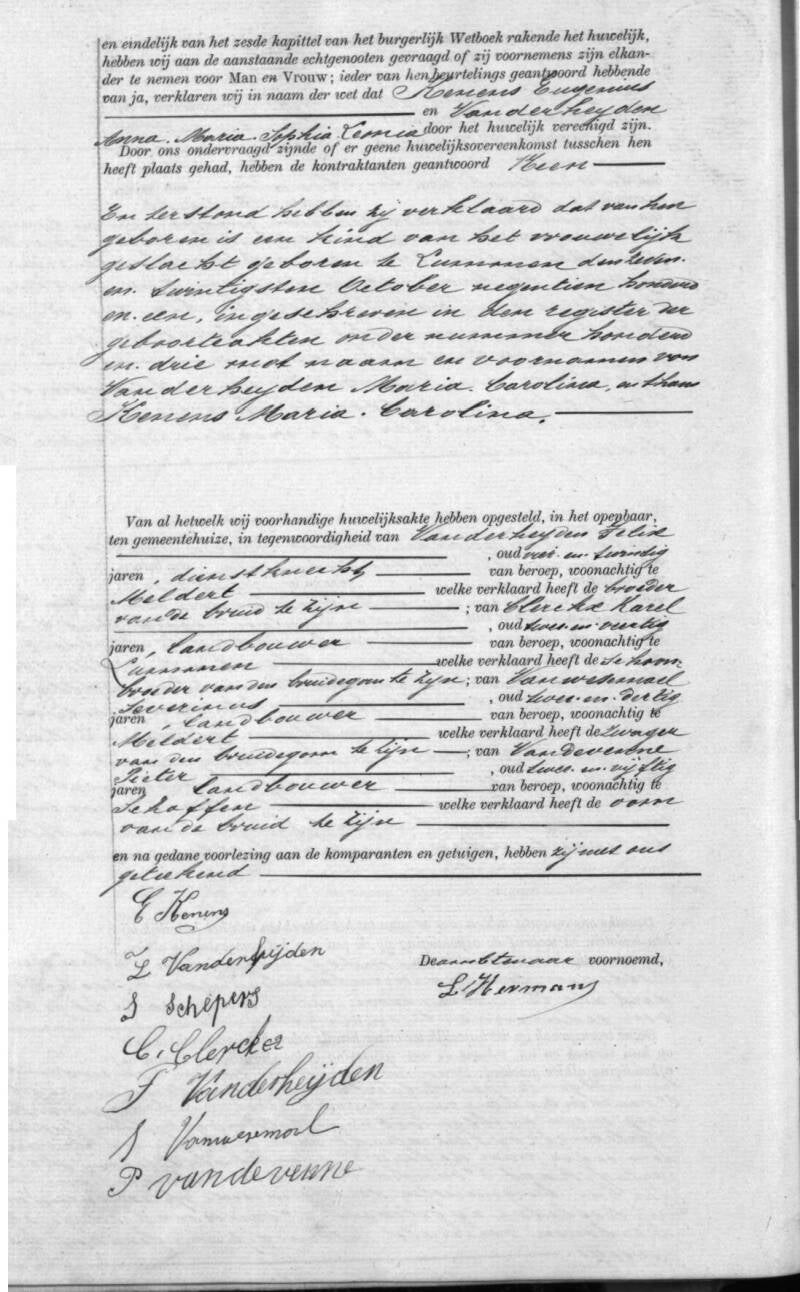 en eindelijk van het zesde kapittel van het burgerlijk Wetboek rakende het huwelijk,
hebben wij aan de aanstaande echtgenooten gevraagd of zij voornemens zijn elkan-
der te nemen voor Man en Vrouw; ieder van hen beurtelings geantwoord hebbende
van ja, verklaren wij in naam der wet dat Kenens Eugenius
en Vanderheyden
Anna. Maria. Sophia door het huwelijk vereenigd zijn.
Door ons ondervraagd zijnde of er geene huwelijksovereenkomst tusschen hen
heeft plaats gehad, hebben de kontraktanten geantwoord Neen
En terstond hebben zij verklaard dat van hen
geboren is een kind van het vrouwelijk
geslacht geboren te Lummen den zeven.
en. twintigsten October negentien honderd
en. een, ingeschreven in den register der
geboorteakten onder nummer honderd
en. drie met naam en voornamen van
Vanderheyden Maria. Carolina, en thans
Kenens Maria. Carolina.
Van al hetwelk wij voorhandige huwelijksakte hebben opgesteld, in het openbaar,
ten gemeentehuize, in tegenwoordigheid van Vanderheyden Felix
, oud vier. en. twintig
jaren, dienstknecht van beroep, woonachtig te
Meldert welke verklaard heeft de broeder
van de bruid te zijn ; van Clerckx Karel
, oud twee. en. veertig
jaren, Landbouwer van beroep, woonachtig te
Lummen welke verklaard heeft de schoon.
broeder van den bruidegom te zijn ; van Vanwesemael
Severinus , oud twee. en. dertig
jaren, Landbouwer van beroep, woonachtig te
Meldert welke verklaard heeft de zwager
van den bruidegom te zijn ; van Vandevenne
Pieter , oud twee. en. vijftig
jaren Landbouwer van beroep, woonachtig te
Schaffen welke verklaard heeft de oom
van de bruid te zijn
en na gedane voorlezing aan de komparanten en getuigen, hebben zij met ons
geteekend
E Kenens
L Vanderheijden
De ambtenaar voornoemd,
S Schepers
L. Hermans
C. Clerckx
F Vanderheijden
S Vanwesemael
P vandevenne